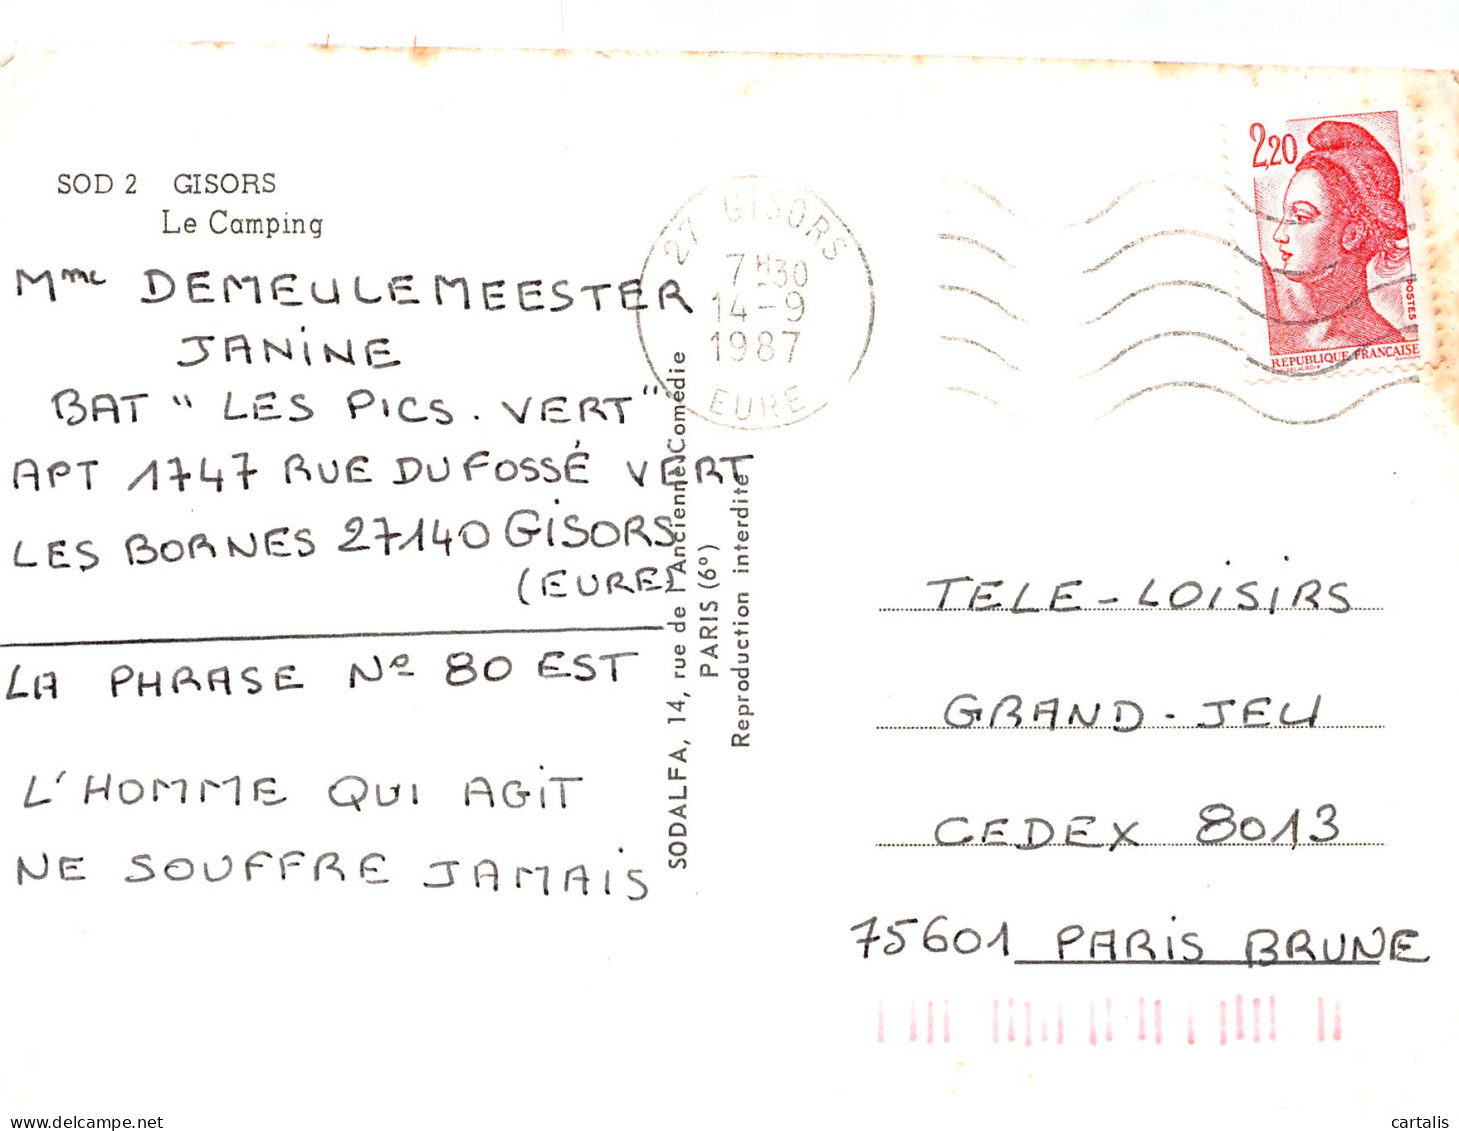 SOD 2 GISORS
Le Camping
Mme DEMEULEMEESTER
JANINE
BAT " LES PICS . VERT "
APT 1747 RUE DU FOSSÉ VERT
LES BORNES 27140 GISORS
(EURE)
LA PHRASE No 80 EST
L'HOMME QUI AGIT
NE SOUFFRE JAMAIS
SODALFA, 14, rue de l'Ancienne Comédie
PARIS (6º)
Reproduction interdite
27 GISORS
7H30
14-9
1987
EURE
2,20
POSTES
REPUBLIQUE FRANÇAISE
TELE-LOISIRS
GRAND-JEU
CEDEX 8013
75601 PARIS BRUNE
cartalis